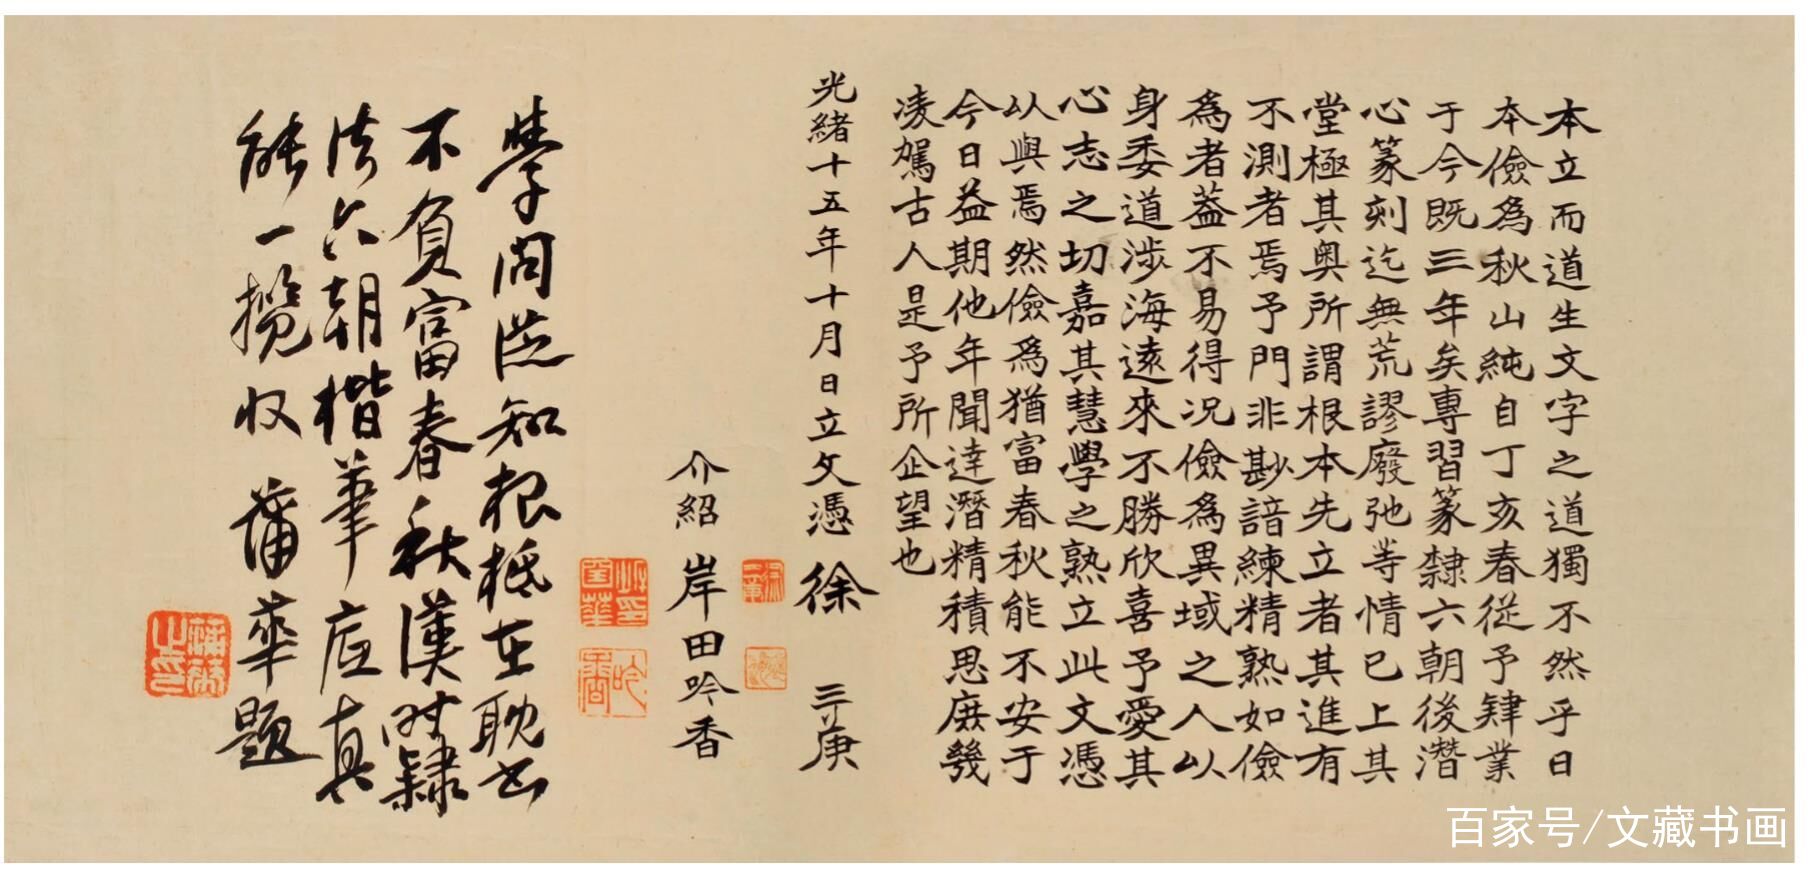 本立而道生文字之道獨不然乎日
本儉爲秋山純自丁亥春從予肄業
于今既三年矣專習篆隸六朝後潛
心篆刻迄無荒謬廢弛等情已上其
堂極其奥所謂根本先立者其進有
不測者焉予門非尠諳練精熟如儉
爲者葢不易得况儉爲異域之人以
身委道涉海遠來不勝欣喜予愛其
心志之切嘉其慧學之熟立此文憑
以與焉然儉爲猶富春秋能不安于
今日益期他年聞達潛精積思庶幾
凌駕古人是予所企望也
光緒十五年十月日立文憑 徐三庚
介紹 岸田吟香
學問從知根柢在耽書
不負富春秋漢時隸
法六朝楷筆底真
能一攬收 蒲華題
蒲華之印
百家号/文藏书画